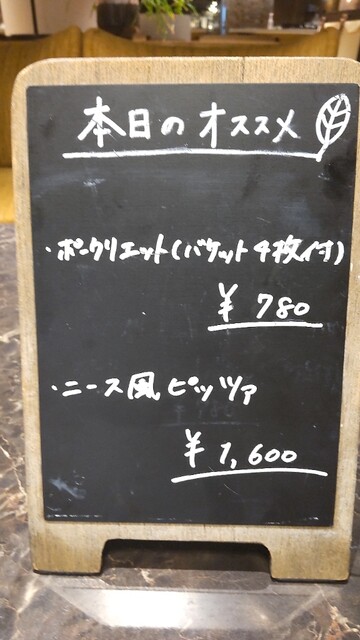 本日のオススメ
・ポークリエット(バケット4枚付)
¥780
・ニース風ピッツァ
¥1,600